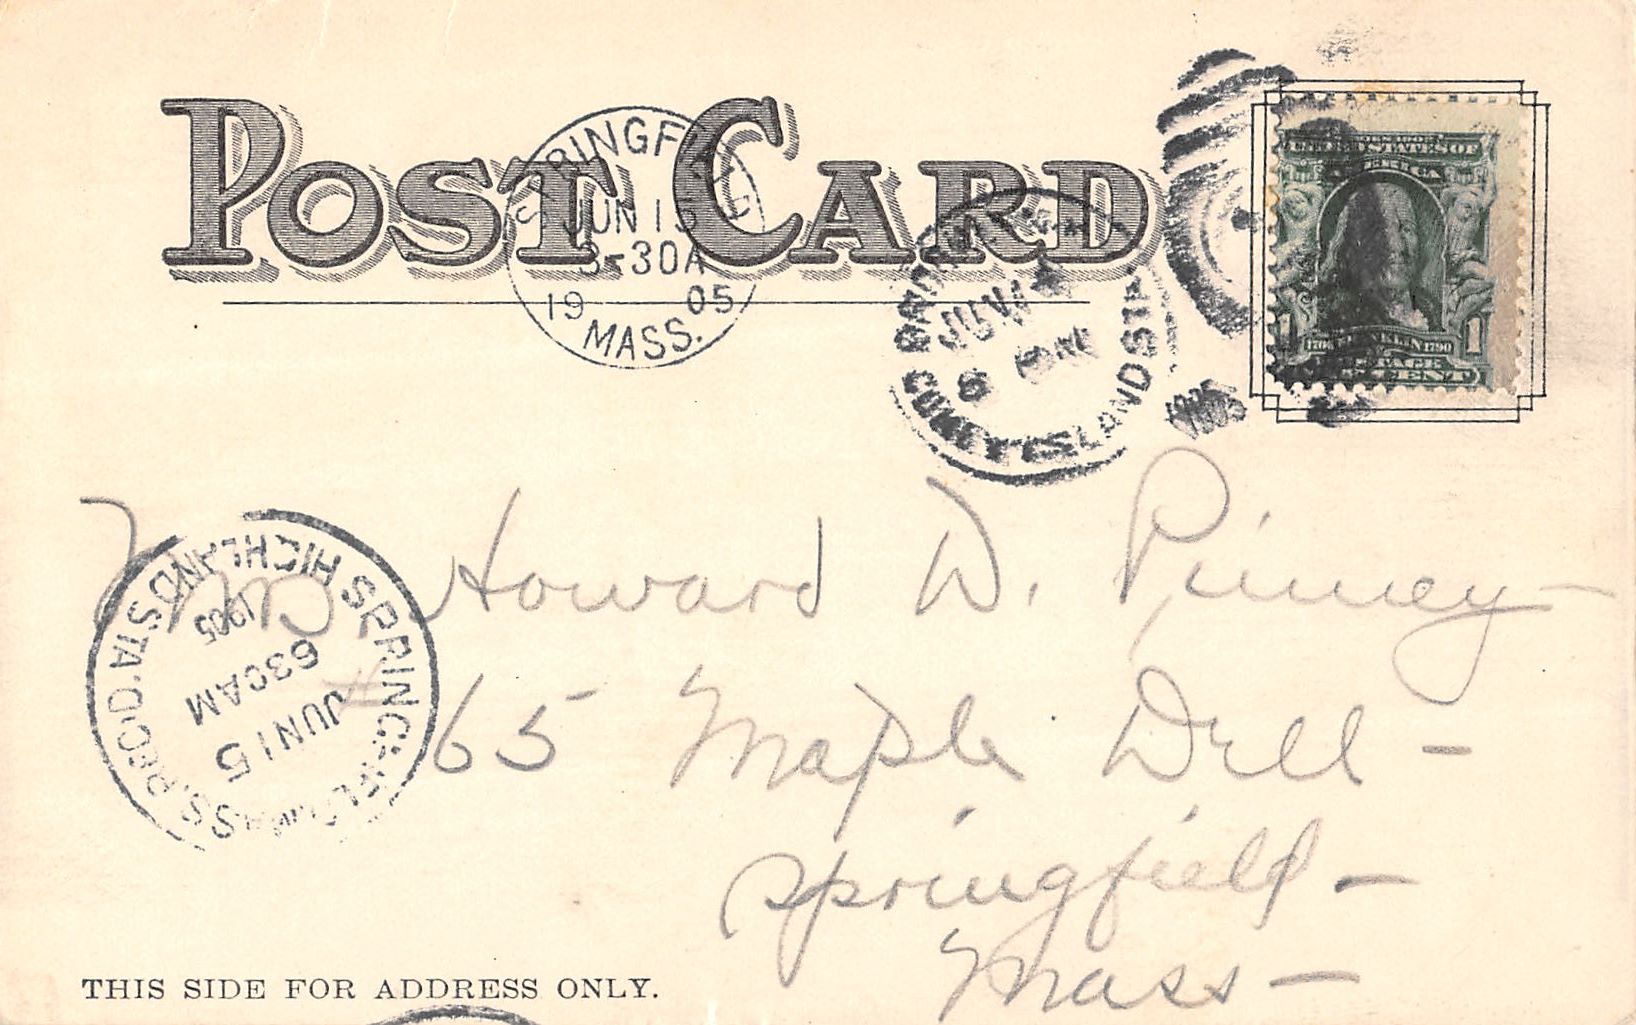 POST CARD
SPRINGFIELD
JUN 15
3-30A
19 05
MASS.
JUN
CONEY ISLAND STA
UNITED STATES OF
AMERICA
1 1
1706 FRANKLIN 1790
ONE CENT
Howard W. Pinney
# 65 Maple Dell -
Springfield -
Mass -
SPRINGFIELD, MASS.
HIGHLAND STA
REC'D.
1905
630AM
JUN 15
THIS SIDE FOR ADDRESS ONLY.